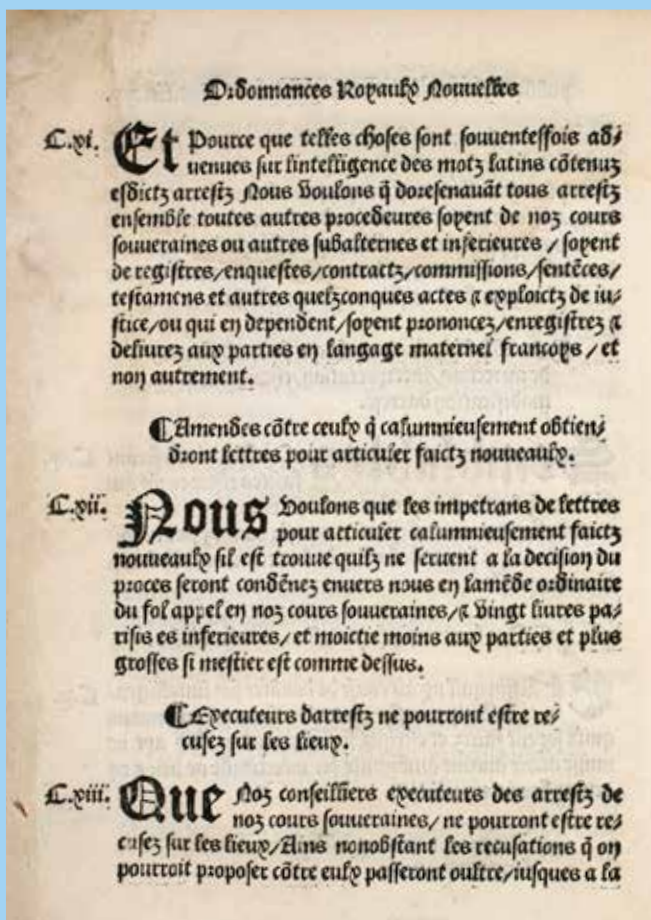 Ordonnances Royaulx Nouuelles
C.xi. Et Pource que telles choses sont souuenteffois ad/
uenues sur lintelligence des motz latins cõtenuz
esdictz arrestz Nous Voulons q̃ doresenauãt tous arrestz
ensemble toutes autres procedeures soyent de noz cours
souueraines ou autres subalternes et inferieures / soyent
de registres/enquestes/contractz/commissions/sentẽces/
testamens et autres quelzconques actes ⁊ exploictz de iu/
stice/ou qui en dependent/soyent prononcez/enregistrez ⁊
deliurez aux parties en langage maternel francoys / et
non autrement.
¶ Amendes cõtre ceulx q̃ calumnieusement obtien/
dront lettres pour articuler faictz nouueaulx.
C.xii. Nous Voulons que les impetrans de lettres
pour articuler calumnieusement faictz
nouueaulx sil est trouue quilz ne seruent a la decision du
proces seront condẽnez enuers nous en lamẽde ordinaire
du fol appel en noz cours souueraines/⁊ Vingt liures pa/
risis es inferieures/ et moictie moins aux parties et plus
grosses si mestier est comme dessus.
¶ Executeurs darrestz ne pourront estre re/
cusez sur les lieux.
C.xiii. Que Noz conseilliers executeurs des arrestz de
noz cours souueraines/ ne pourront estre re/
cusez sur les lieux/Ains nonobstant les recusations q̃ on
pourroit proposer cõtre eulx passeront oultre/iusques a la